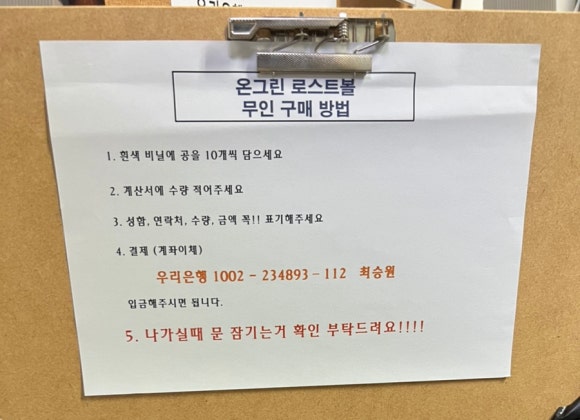 온그린 로스트볼
무인 구매 방법
1. 흰색 비닐에 공을 10개씩 담으세요
2. 계산서에 수량 적어주세요
3. 성함, 연락처, 수량, 금액 꼭!! 표기해주세요
4. 결제 (계좌이체)
우리은행 1002 - 234893 - 112 최승원
입금해주시면 됩니다.
5. 나가실때 문 잠기는거 확인 부탁드려요!!!!